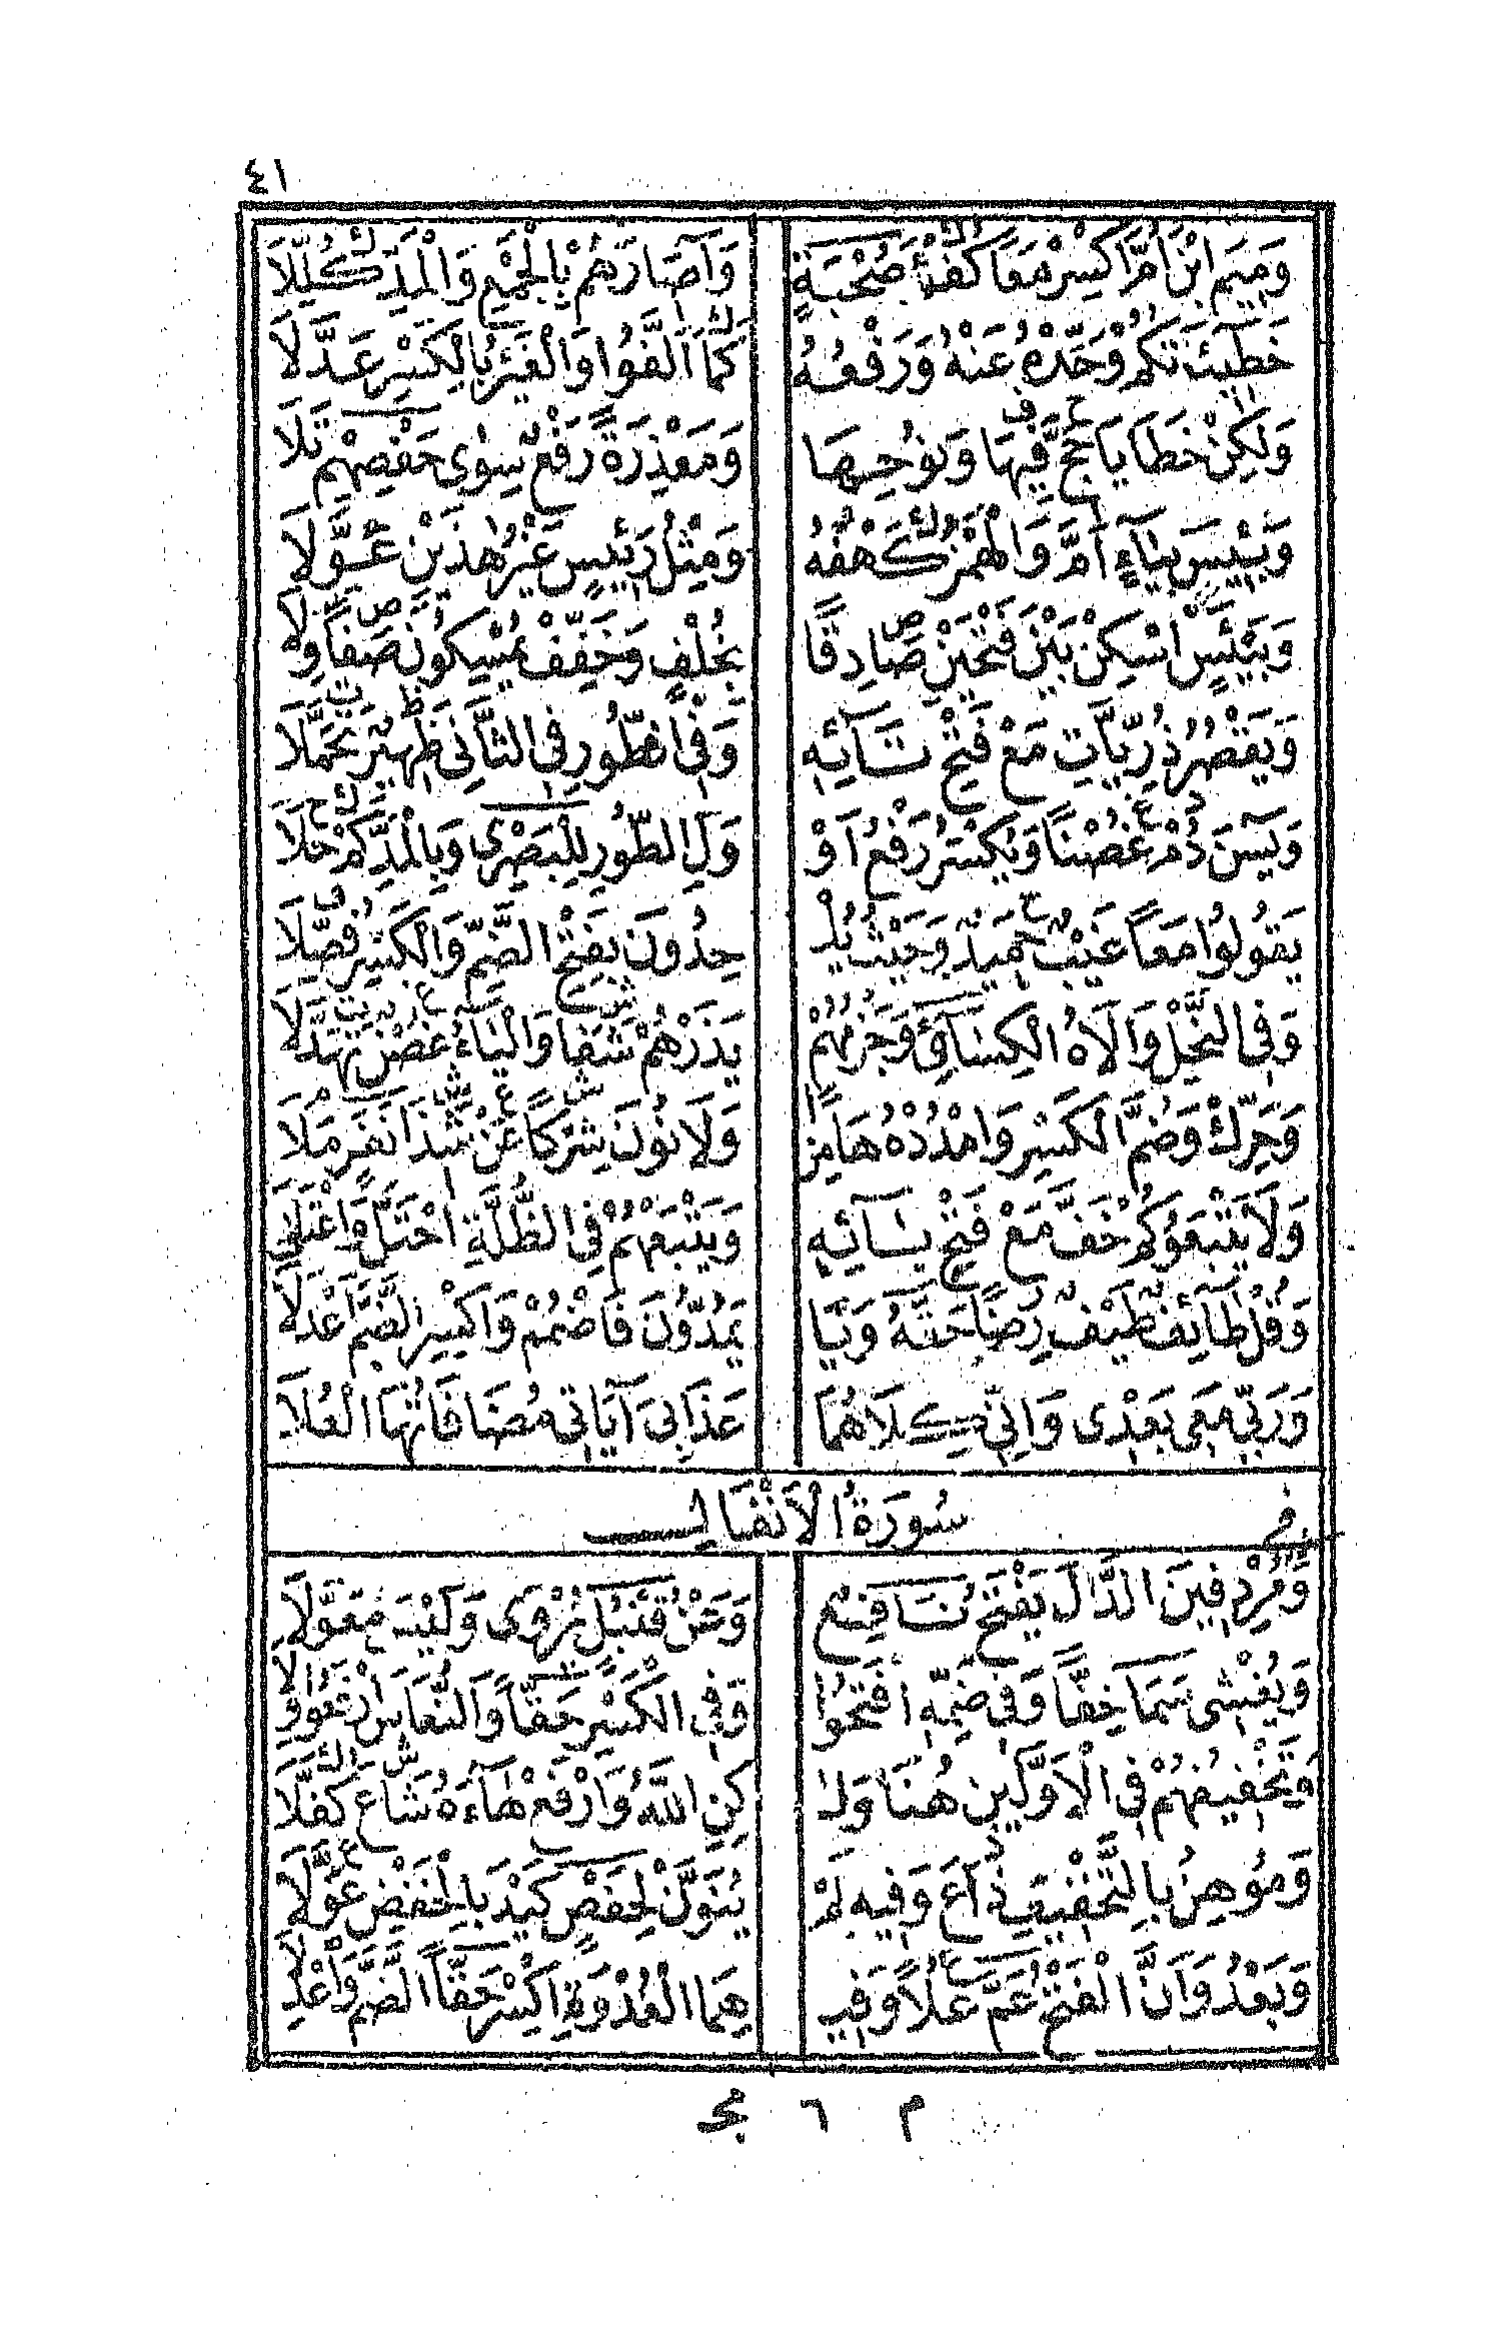 ٤١
وَمِيمَ ابْنَ أُمَّ اكْسِرْ مَعًا كُفْؤُ صُحْبَةٍ وَآصَارَهُمْ بِالْجَمْعِ وَالْمَدِّ كُلِّلَا
خَطِيئَتُكُمْ وَحِّدْهُ عَنْهُ وَرَفْعُهُ كَمَا أَلَّفُوا وَالْغَيْرُ بِالْكَسْرِ عَدَّلَا
وَلَكِنْ خَطَايَا حَجَّ فِيهَا وَنُوحِهَا وَمَعْذِرَةً رَفْعٌ سِوَى حَفْصِهِمْ تَلَا
وَبِيسٍ بِيَاءٍ أَمَّ وَالْهَمْزُ كَهْفُهُ وَمِثْلُ رَئِيسٍ غَيْرُ هَذَيْنِ عَوَّلَا
وَبَيْئَسٍ اسْكِنْ بَيْنَ فَتْحَيْنِ صَادِقًا بِخُلْفٍ وَخَفِّفْ يُمْسِكُونَ صَفَا وِلَا
وَيَقْصُرُ ذُرِّيَّاتِ مَعْ فَتْحِ تَائِهِ وَفِي الطُّورِ فِي الثَّانِي ظَهِيرٌ تَحَمَّلَا
وَيَاسِينَ دُمْ غُصْنًا وَيُكْسَرُ رَفْعُ أَوْ وَلِ الطُّورِ لِلْبَصْرِي وَبِالْمَدِّ كَمْ حَلَا
يَقُولُوا مَعًا غَيْبٌ حَمِيدٌ وَحَيْثُ يُلْـ حِدُونَ بِفَتْحِ الضَّمِّ وَالْكَسْرِ فُصِّلَا
وَفِي النَّحْلِ وَالَاهُ الْكِسَائِي وَجَزْمُهُمْ يَذَرْهُمْ شَفَا وَالْيَاءُ غُصْنٌ تَهَدَّلَا
وَحَرِّكْ وَضُمَّ الْكَسْرَ وَامْدُدْهُ هَامِزًا وَلَا نُونَ شِرْكًا عَنْ شَذَا نَفَرٍ مَلَا
وَلَا يَتْبَعُوكُمْ خَفَّ مَعْ فَتْحِ بَائِهِ وَيَتْبَعُهُمْ فِي الظُّلَّةِ احْتَلَّ وَاعْتَلَى
وَقُلْ طَائِفٌ طَيْفٌ رِضًا حَقُّهُ وَيَا يَمُدُّونَ فَاضْمُمْ وَاكْسِرِ الضَّمَّ أَعْدَلَا
وَرَبِّي مَعِي بَعْدِي وَإِنِّي كِلَاهُمَا عَذَابِيَ آيَاتِي مُضَافَاتُهَا الْعُلَا
سُورَةُ الْأَنْفَالِ
وَمُرْدِفِينَ الدَّالَ يَفْتَحُ نَافِعٌ وَعَنْ قُنْبُلٍ يُرْوَى وَلَيْسَ مُعَوَّلَا
وَيُغْشِي سَمَا خِفًّا وَفِي ضَمِّهِ افْتَحُوا وَفِي الْكَسْرِ حَقًّا وَالنُّعَاسَ ارْفَعُوا وِلَا
وَتَخْفِيفُهُمْ فِي الْأَوَّلَيْنِ هُنَا وَلَـ كِنِ اللَّهُ وَارْفَعْ هَاءَهُ شَاعَ كُفَّلَا
وَمُوهِنُ بِالتَّخْفِيفِ ذَاعَ وَفِيهِ لَمْ يُنَوَّنْ لِحَفْصٍ كَيْدَ بِالْخَفْضِ عَوَّلَا
وَبَعْدُ وَأَنَّ الْفَتْحُ عَمَّ عُلًا وَفِيـ هِمَا الْعُدْوَةِ اكْسِرْ حَقًّا الضَّمَّ وَاعْدِلَا
م ٦